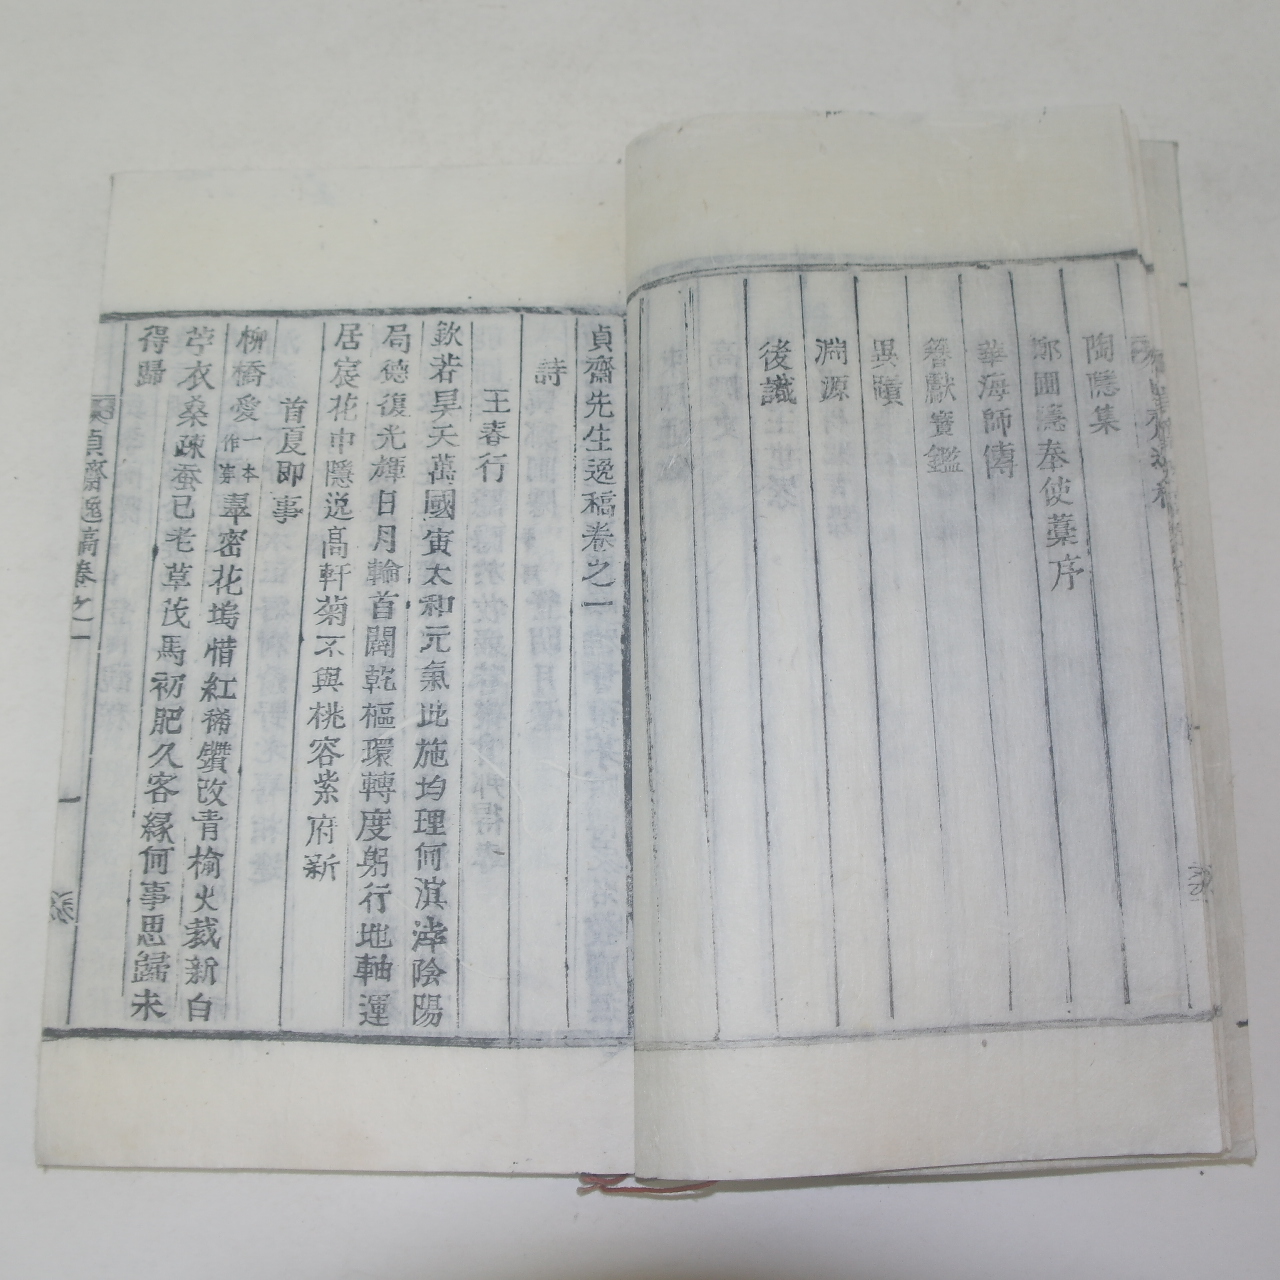 陶隱集
鄭圃隱奉使藁序
華海師傳
簪獻寶鑑
異蹟
淵源
後識
貞齋先生逸稿卷之一
詩
王春行
欽若昊天萬國寅太和元氣此施均理何滇涬陰陽
局德復光輝日月輪首闢乾樞環轉度躬行地軸運
居宸花中隱逸高軒菊不與桃容紫府新
首夏即事
柳橋愛一本作穿翠密花塢惜紅稀鑽改青榆火裁新白
苧衣桑疎蚕已老草茂馬初肥久客緣何事思歸未
得歸
貞齋逸稿卷之一
一